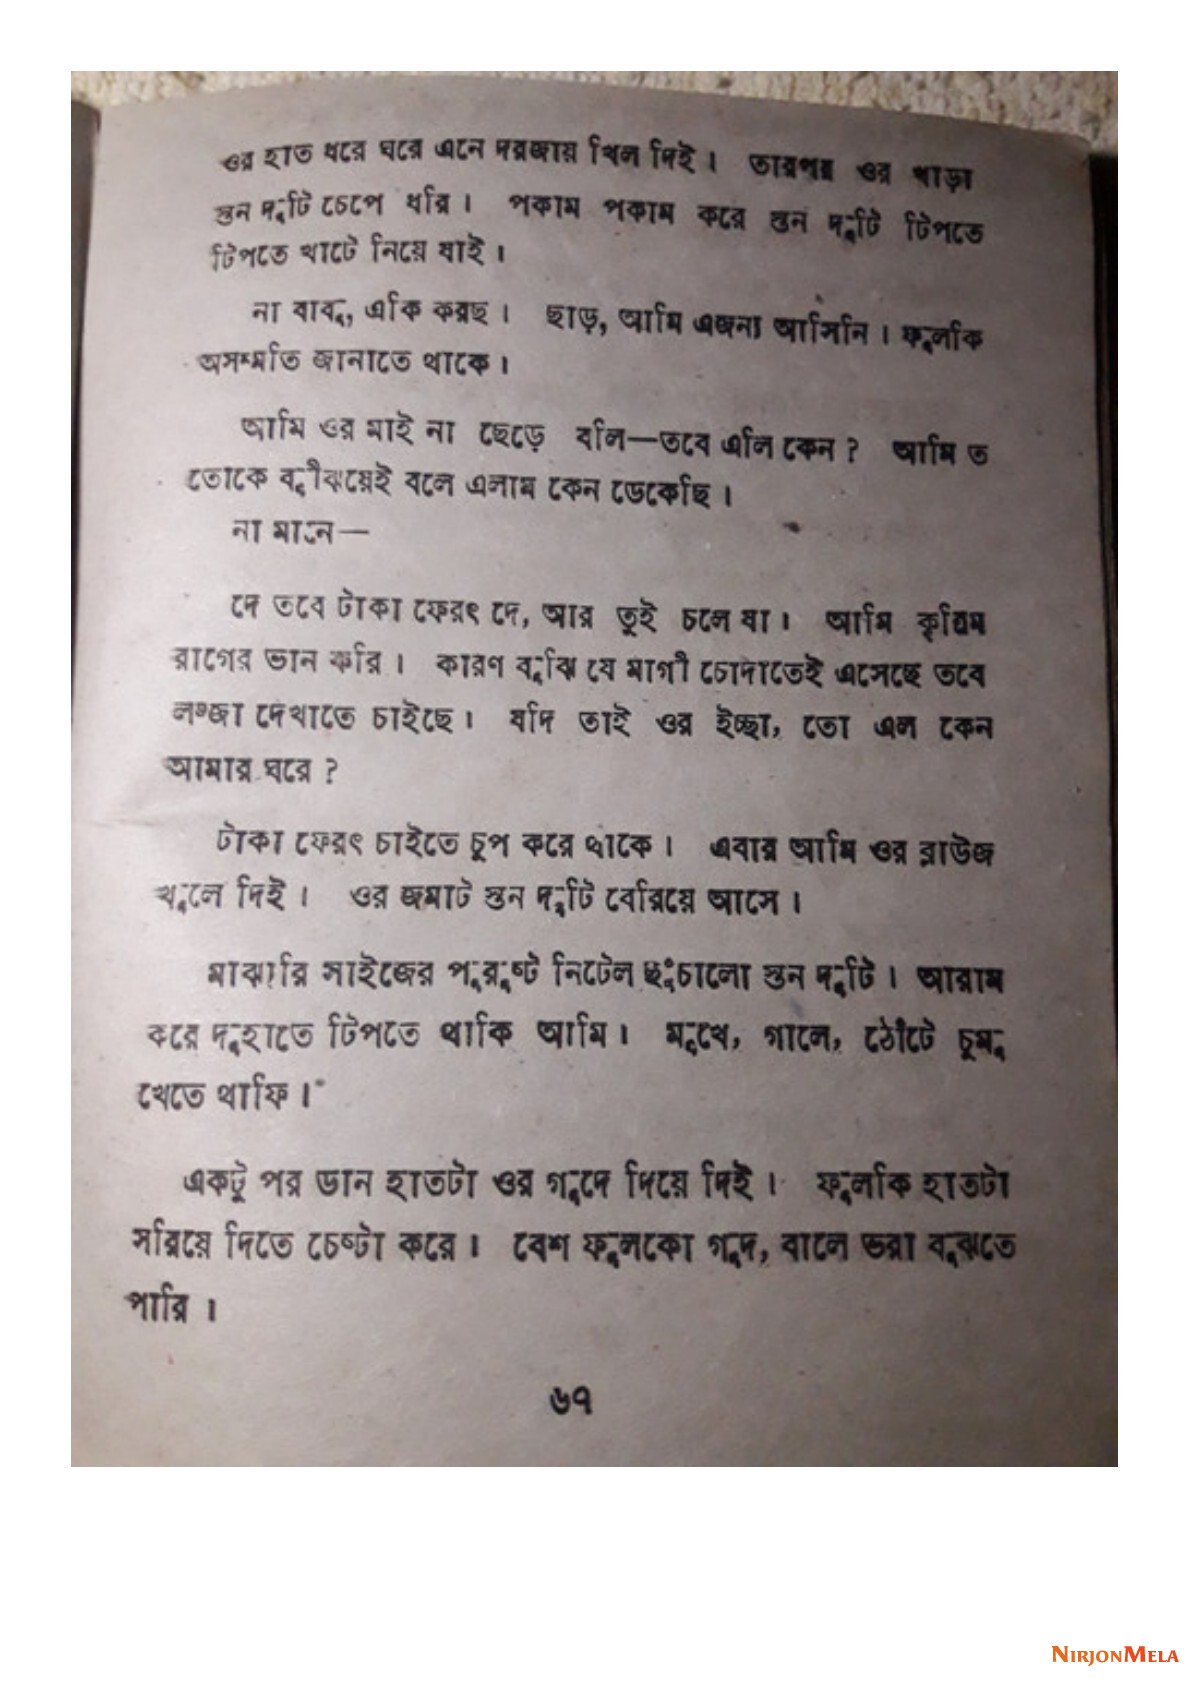 ওর হাত ধরে ঘরে এনে দরজায় খিল দিই। তারপর ওর খাড়া
স্তন দুটি চেপে ধরি। পকাম পকাম করে স্তন দুটি টিপতে
টিপতে খাটে নিয়ে যাই।
না বাবু, একি করছ। ছাড়, আমি এজন্য আসিনি। ফুলকি
অসম্মতি জানাতে থাকে।
আমি ওর মাই না ছেড়ে বলি—তবে এলি কেন? আমি ত
তোকে বুঝিয়েই বলে এলাম কেন ডেকেছি।
না মানে—
দে তবে টাকা ফেরৎ দে, আর তুই চলে যা। আমি কৃত্রিম
রাগের ভান করি। কারণ বুঝি যে মাগী চোদাতেই এসেছে তবে
লজ্জা দেখাতে চাইছে। যদি তাই ওর ইচ্ছা, তো এল কেন
আমার ঘরে?
টাকা ফেরৎ চাইতে চুপ করে থাকে। এবার আমি ওর ব্লাউজ
খুলে দিই। ওর জমাট স্তন দুটি বেরিয়ে আসে।
মাঝারি সাইজের পুরুষ্ট নিটেল ছুঁচালো স্তন দুটি। আরাম
করে দুহাতে টিপতে থাকি আমি। মুখে, গালে, ঠোঁটে চুমু
খেতে থাফি।
একটু পর ডান হাতটা ওর গুদে দিয়ে দিই। ফুলকি হাতটা
সরিয়ে দিতে চেষ্টা করে। বেশ ফুলকো গুদ, বালে ভরা বুঝতে
পারি।
৬৭
NIRJONMELA